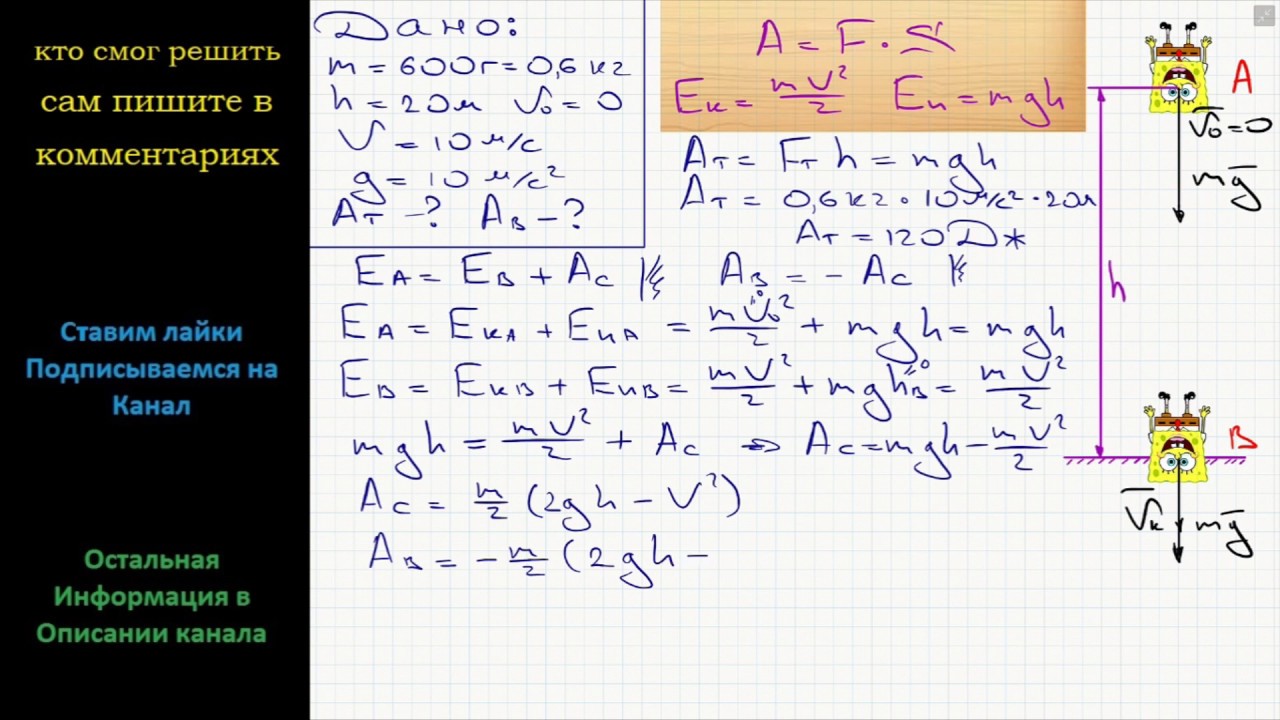 кто смог решить
сам пишите в
комментариях
Ставим лайки
Подписываемся на
Канал
Остальная
Информация в
Описании канала
Дано:
m = 600г = 0,6 кг
h = 20м V₀ = 0
V = 10 м/с
g = 10 м/с²
Aт - ? Aв - ?
A = F · S
Eк = mV²/2 Eп = mgh
Aт = Fт h = mgh
Aт = 0,6 кг · 10 м/с² · 20м
Aт = 120 Дж
EA = EB + Ac Aв = - Ac
EA = EкA + EпA = mV₀²/2 + mgh = mgh
EB = EкB + EпB = mV²/2 + mghB = mV²/2
mgh = mV²/2 + Ac ⇒ Ac = mgh - mV²/2
Ac = m/2 (2gh - V²)
Aв = - m/2 (2gh -
A
V̅₀ = 0
mg̅
h
B
V̅к
mg̅